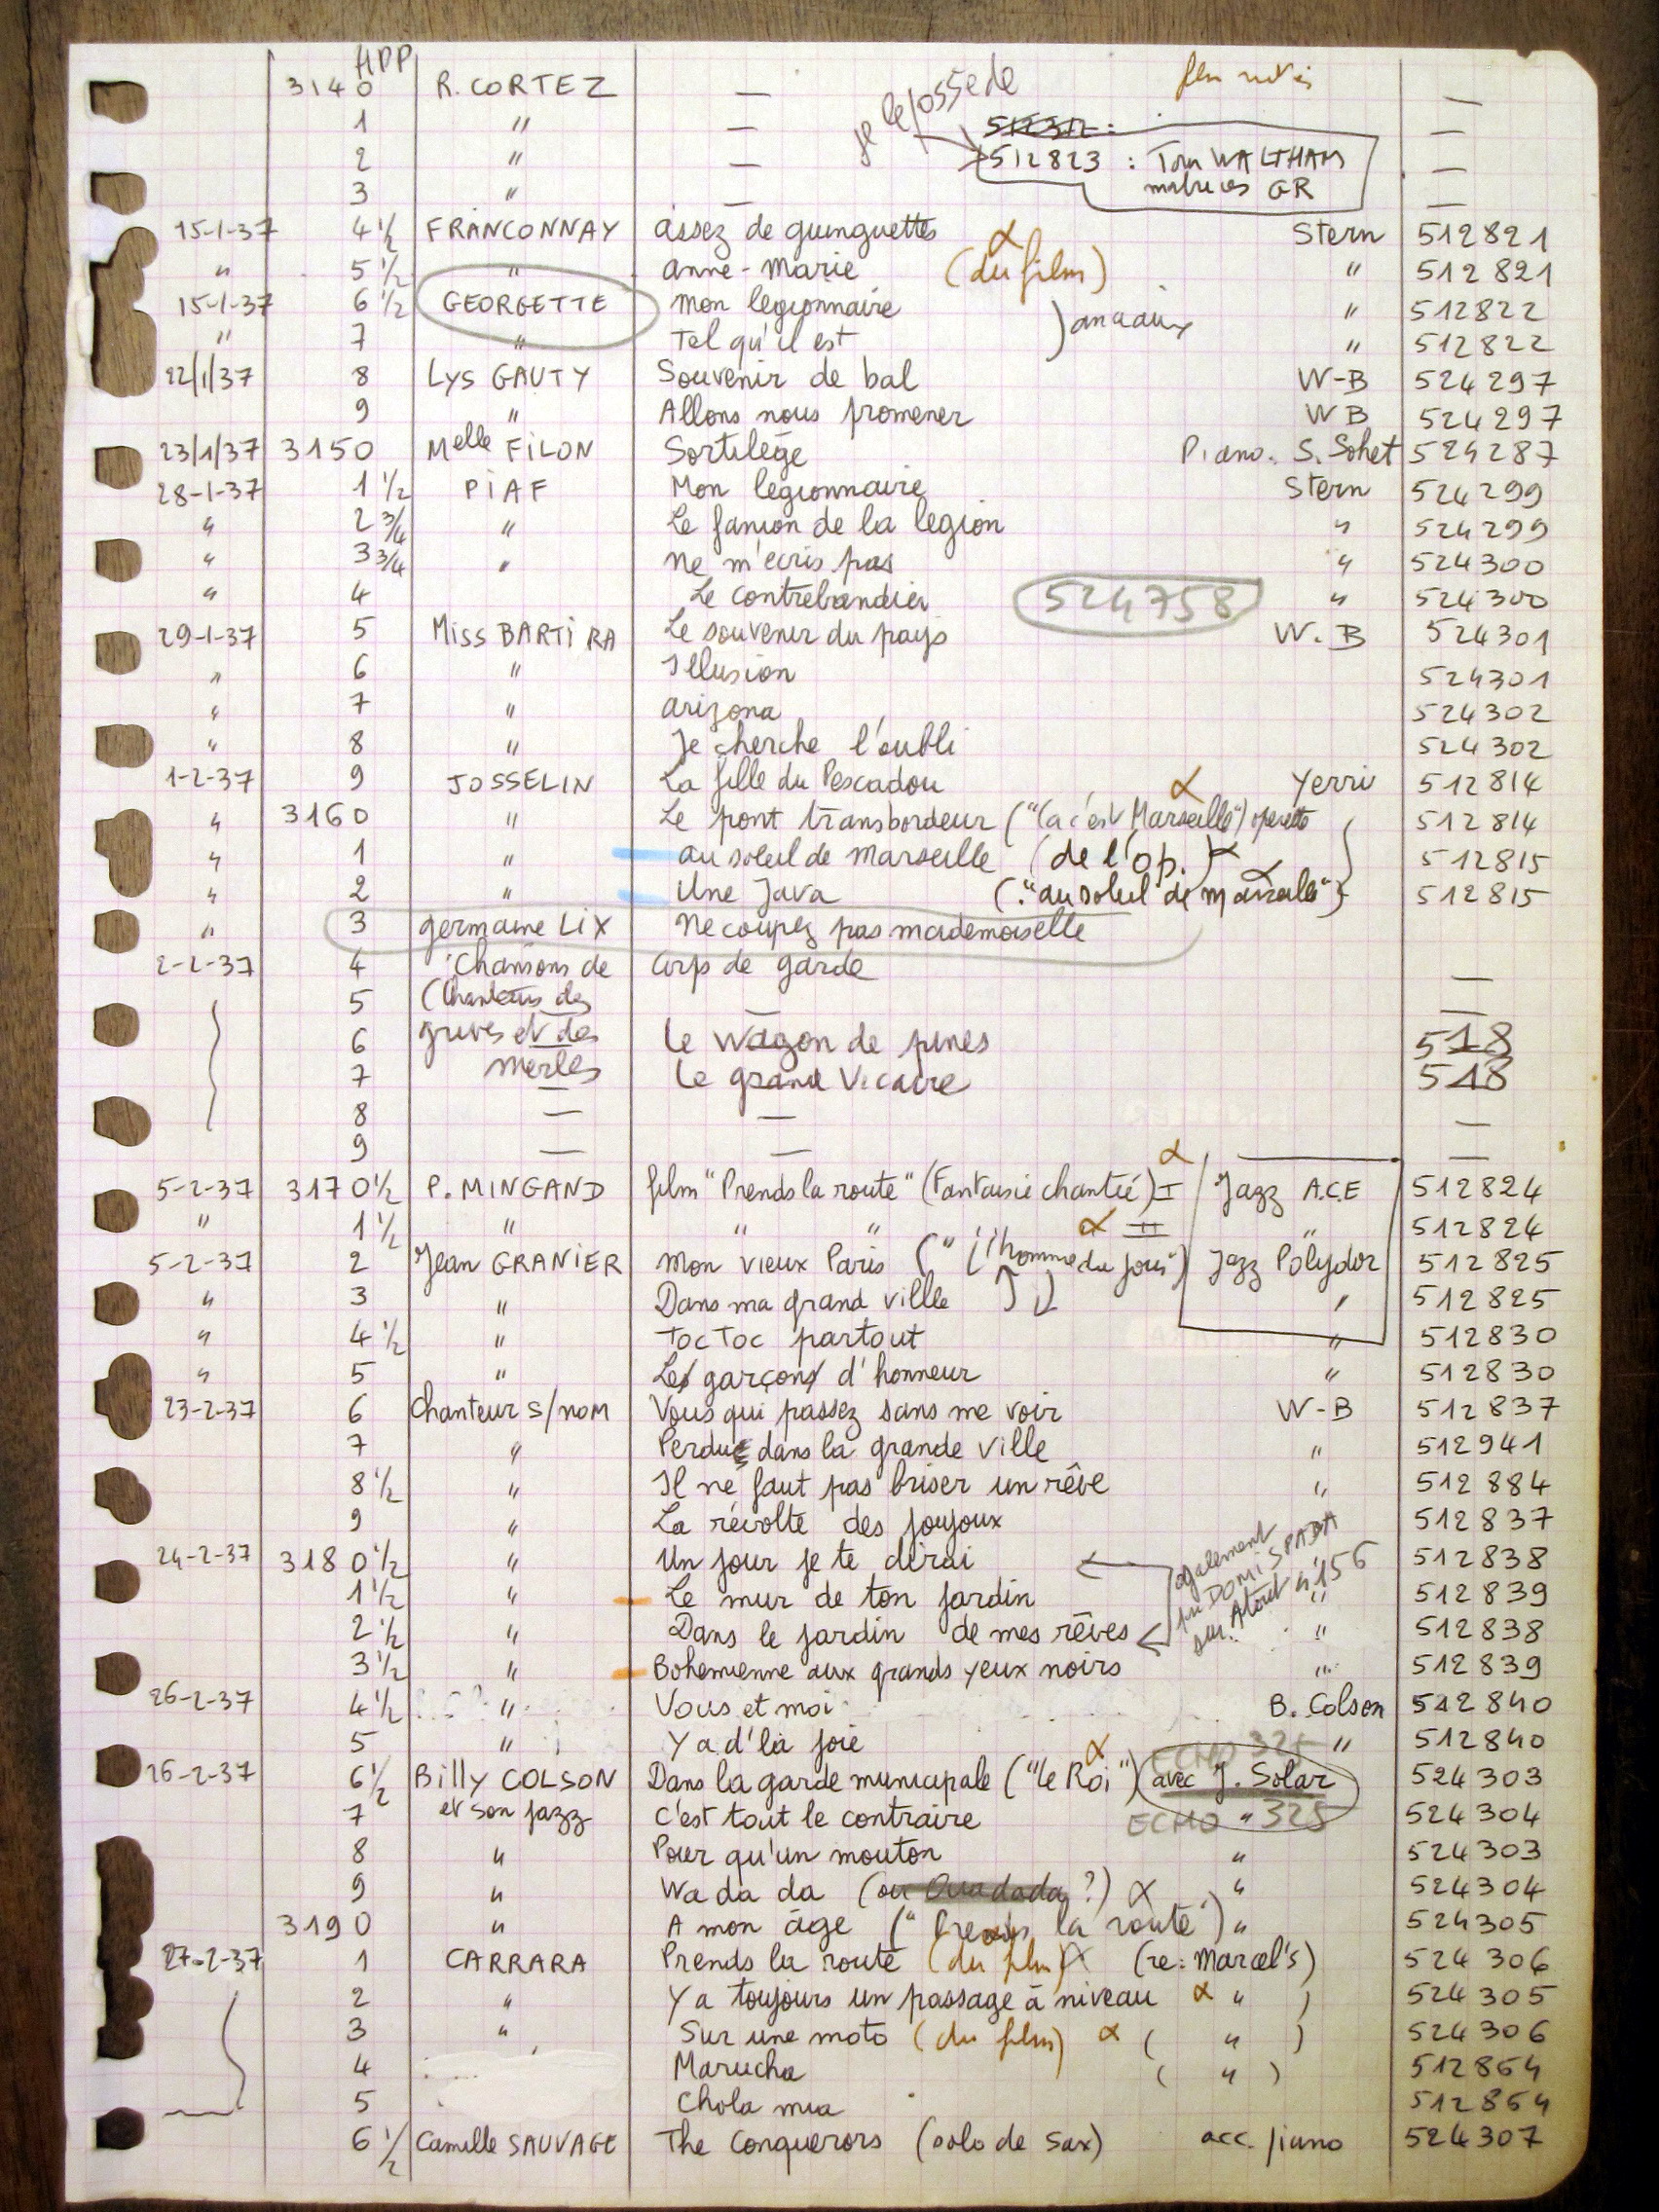 HPP
3140 R. CORTEZ — je le possède —
1 " — 512312 : —
2 " — 512823 : Tom WALTHAM —
3 " — matrices GR —
15-1-37 4 1/2 FRANCONNAY assez de guinguettes α Stern 512821
" 5 1/2 " anne-marie (du film) " 512821
15-1-37 6 1/2 GEORGETTE mon legionnaire " 512822
" 7 " Tel qu'il est " 512822
22/1/37 8 LYS GAUTY Souvenir de bal W-B 524297
9 " Allons nous promener WB 524297
23/1/37 3150 Melle FILON Sortilège Piano. S. Sohet 524287
28-1-37 1 1/2 PIAF Mon legionnaire Stern 524299
" 2 3/4 " Le fanion de la legion " 524299
" 3 3/4 " ne m'ecris pas " 524300
" 4 Le contrebandier 524758 " 524300
29-1-37 5 Miss BARTIRA Le souvenir du pays W.B 524301
" 6 " Illusion 524301
" 7 " arizona 524302
" 8 " Je cherche l'oubli 524302
1-2-37 9 JOSSELIN La fille du Pescadou α Yerri 512814
" 3160 " Le pont transbordeur ("Ca c'est Marseille") operette 512814
" 1 " au soleil de marseille (de l'op.) α 512815
" 2 " Une Java ("au soleil de marseille") 512815
" 3 germaine LIX Ne coupez pas mademoiselle
2-2-37 4 Chansons de corps de garde —
5 (Chanteurs des — —
6 grives et des Le wagon de pines 518
7 merles Le grand Vicaire 518
8 — — —
9 — — —
5-2-37 3170 1/2 P. MINGAND film "Prends la route" (Fantaisie chantée) I α Jazz A.C.E 512824
" 1 1/2 " " " α II " 512824
5-2-37 2 Jean GRANIER mon vieux Paris ("l'homme du jour") Jazz Polydor 512825
" 3 " Dans ma grand villle " 512825
" 4 1/2 " Toc Toc partout " 512830
" 5 " Les garçons d'honneur " 512830
23-2-37 6 Chanteur s/nom Vous qui passez sans me voir W-B 512837
7 " Perdue dans la grande ville " 512941
8 1/2 " Il ne faut pas briser un rêve " 512884
9 " La révolte des joujoux 512837
24-2-37 3180 1/2 " Un jour je te dirai également 512838
1 1/2 " Le mur de ton jardin par DOMI SPADA " 512839
2 1/2 " Dans le jardin de mes rêves sur Atout n 156 " 512838
3 1/2 " Bohemienne aux grands yeux noirs " 512839
26-2-37 4 1/2 " Vous et moi B. Colson 512840
5 " Y a d'la joie " 512840
26-2-37 6 1/2 Billy COLSON Dans la garde municipale ("le Roi") α avec J. Solar ECHO 325 524303
7 et son jazz C'est tout le contraire ECHO " 325 524304
8 " Pour qu'un mouton " 524303
9 " Wa da da (ou Oua dada ?) α " 524304
3190 " A mon âge ("Prends la route") " 524305
27-2-37 1 CARRARA Prends la route (du film) α (re: Marcel's) 524306
2 " Y a toujours un passage à niveau α " ) 524305
3 " Sur une moto (du film) α ( " ) 524306
4 Marucha ( " ) 512864
5 Chola mia 512864
6 1/2 Camille SAUVAGE The Conquerors (solo de sax) acc. piano 524307